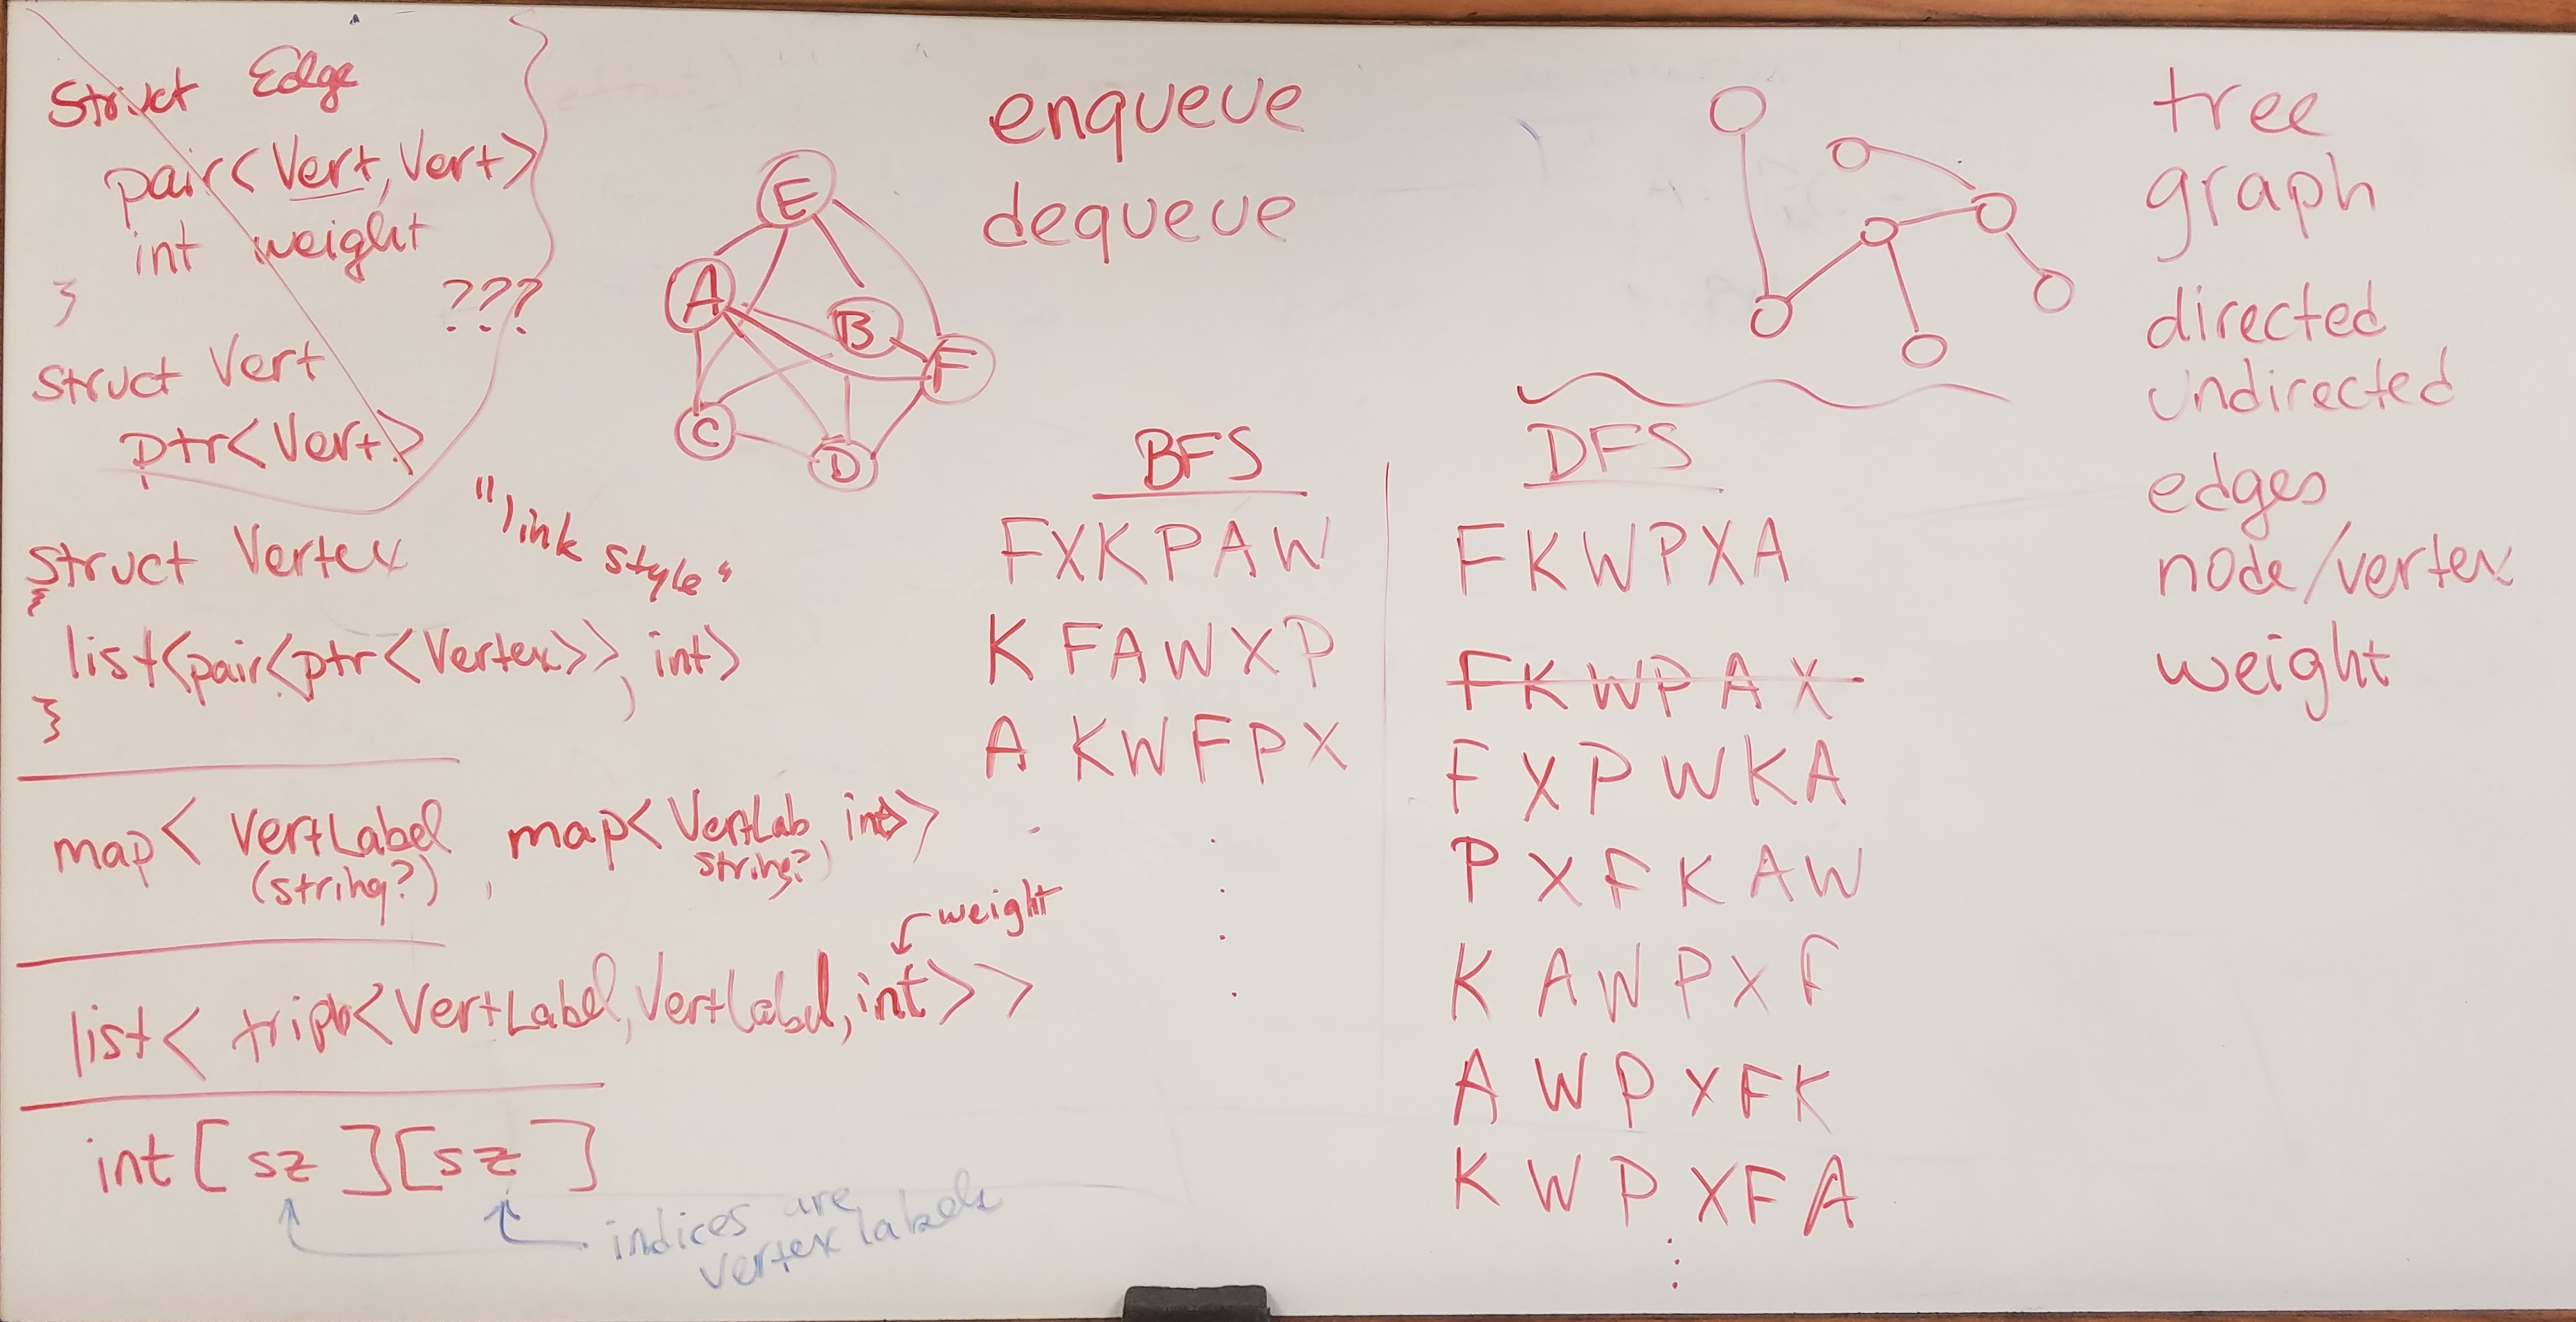 Struct Edge
pair<Vert, Vert>
int weight
}
???
Struct Vert
ptr<Vert>
"link style"
Struct Vertex
{
list<pair<ptr<Vertex>>, int>
}
map< VertLabel, map< VertLab, int>>
(string?)
string?)
weight
list< triple<VertLabel, VertLabel, int>>
int[sz][sz]
indices are
vertex labels
E
A
B
F
C
D
enqueue
dequeue
BFS
FXKPAW
K FAWXP
A KWFPX
DFS
FKWPXA
FKWPAX
FXPWKA
PXFKAW
K AWPXF
A WPXFK
K WPXFA
tree
graph
directed
undirected
edges
node/vertex
weight